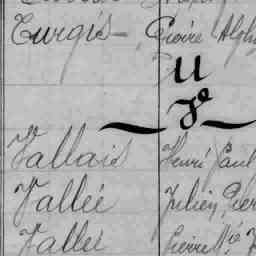 Turgis Pierre Alph
U
Ve
Vallais Henri Paul
Vallée Julien Pier
Vallée Pierre